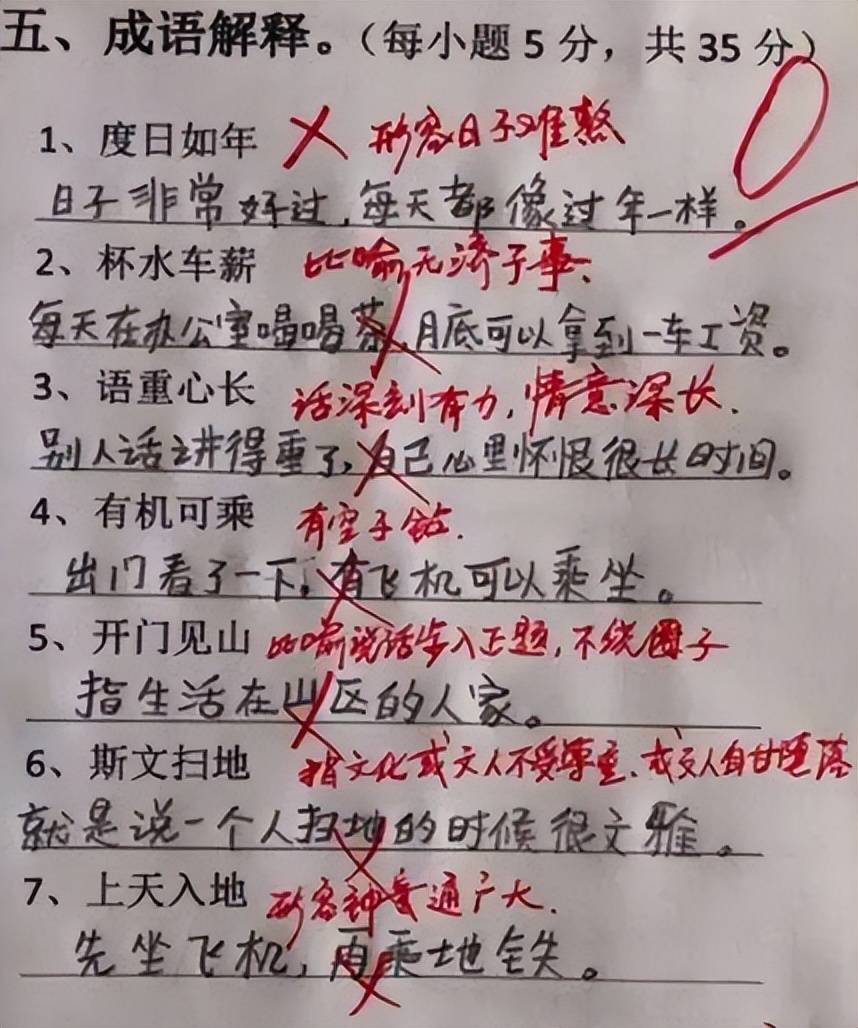 五、成语解释。（每小题5分，共35分）
0
1、度日如年 形容日子难熬
日子非常好过，每天都像过年一样。
2、杯水车薪 比喻无济于事、
每天在办公室喝喝茶，月底可以拿到一车工资。
3、语重心长 话深刻有力，情意深长.
别人话讲得重了，自己心里怀恨很长时间。
4、有机可乘 有空子钻.
出门看了一下，有飞机可以乘坐。
5、开门见山 比喻说话步入正题，不绕圈子
指生活在山区的人家。
6、斯文扫地 指文化或文人不受尊重、或文人自甘堕落
就是说一个人扫地的时候很文雅。
7、上天入地 形容神通广大.
先坐飞机，再乘地铁。